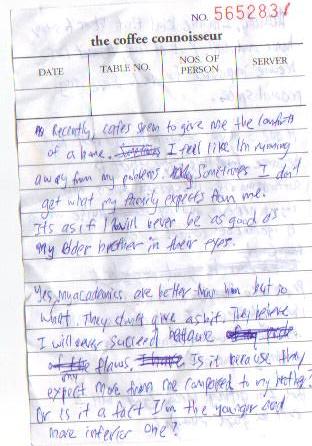 NO. 565283
the coffee connoisseur
DATE TABLE NO. NOS. OF PERSON SERVER
Recently, cafes seem to give me the comforts
of a home. I feel like I'm running
away from my problems. Sometimes I don't
get what my family expects from me.
Its as if I will never be as good as
my older brother in their eyes.
Yes, my academics are better than him but so
what. They don't give a shit. They believe
I will never succeed because
of my flaws. Is it because they
expect more from me compared to my brother?
Or is it a fact I'm the younger and
more inferior one?